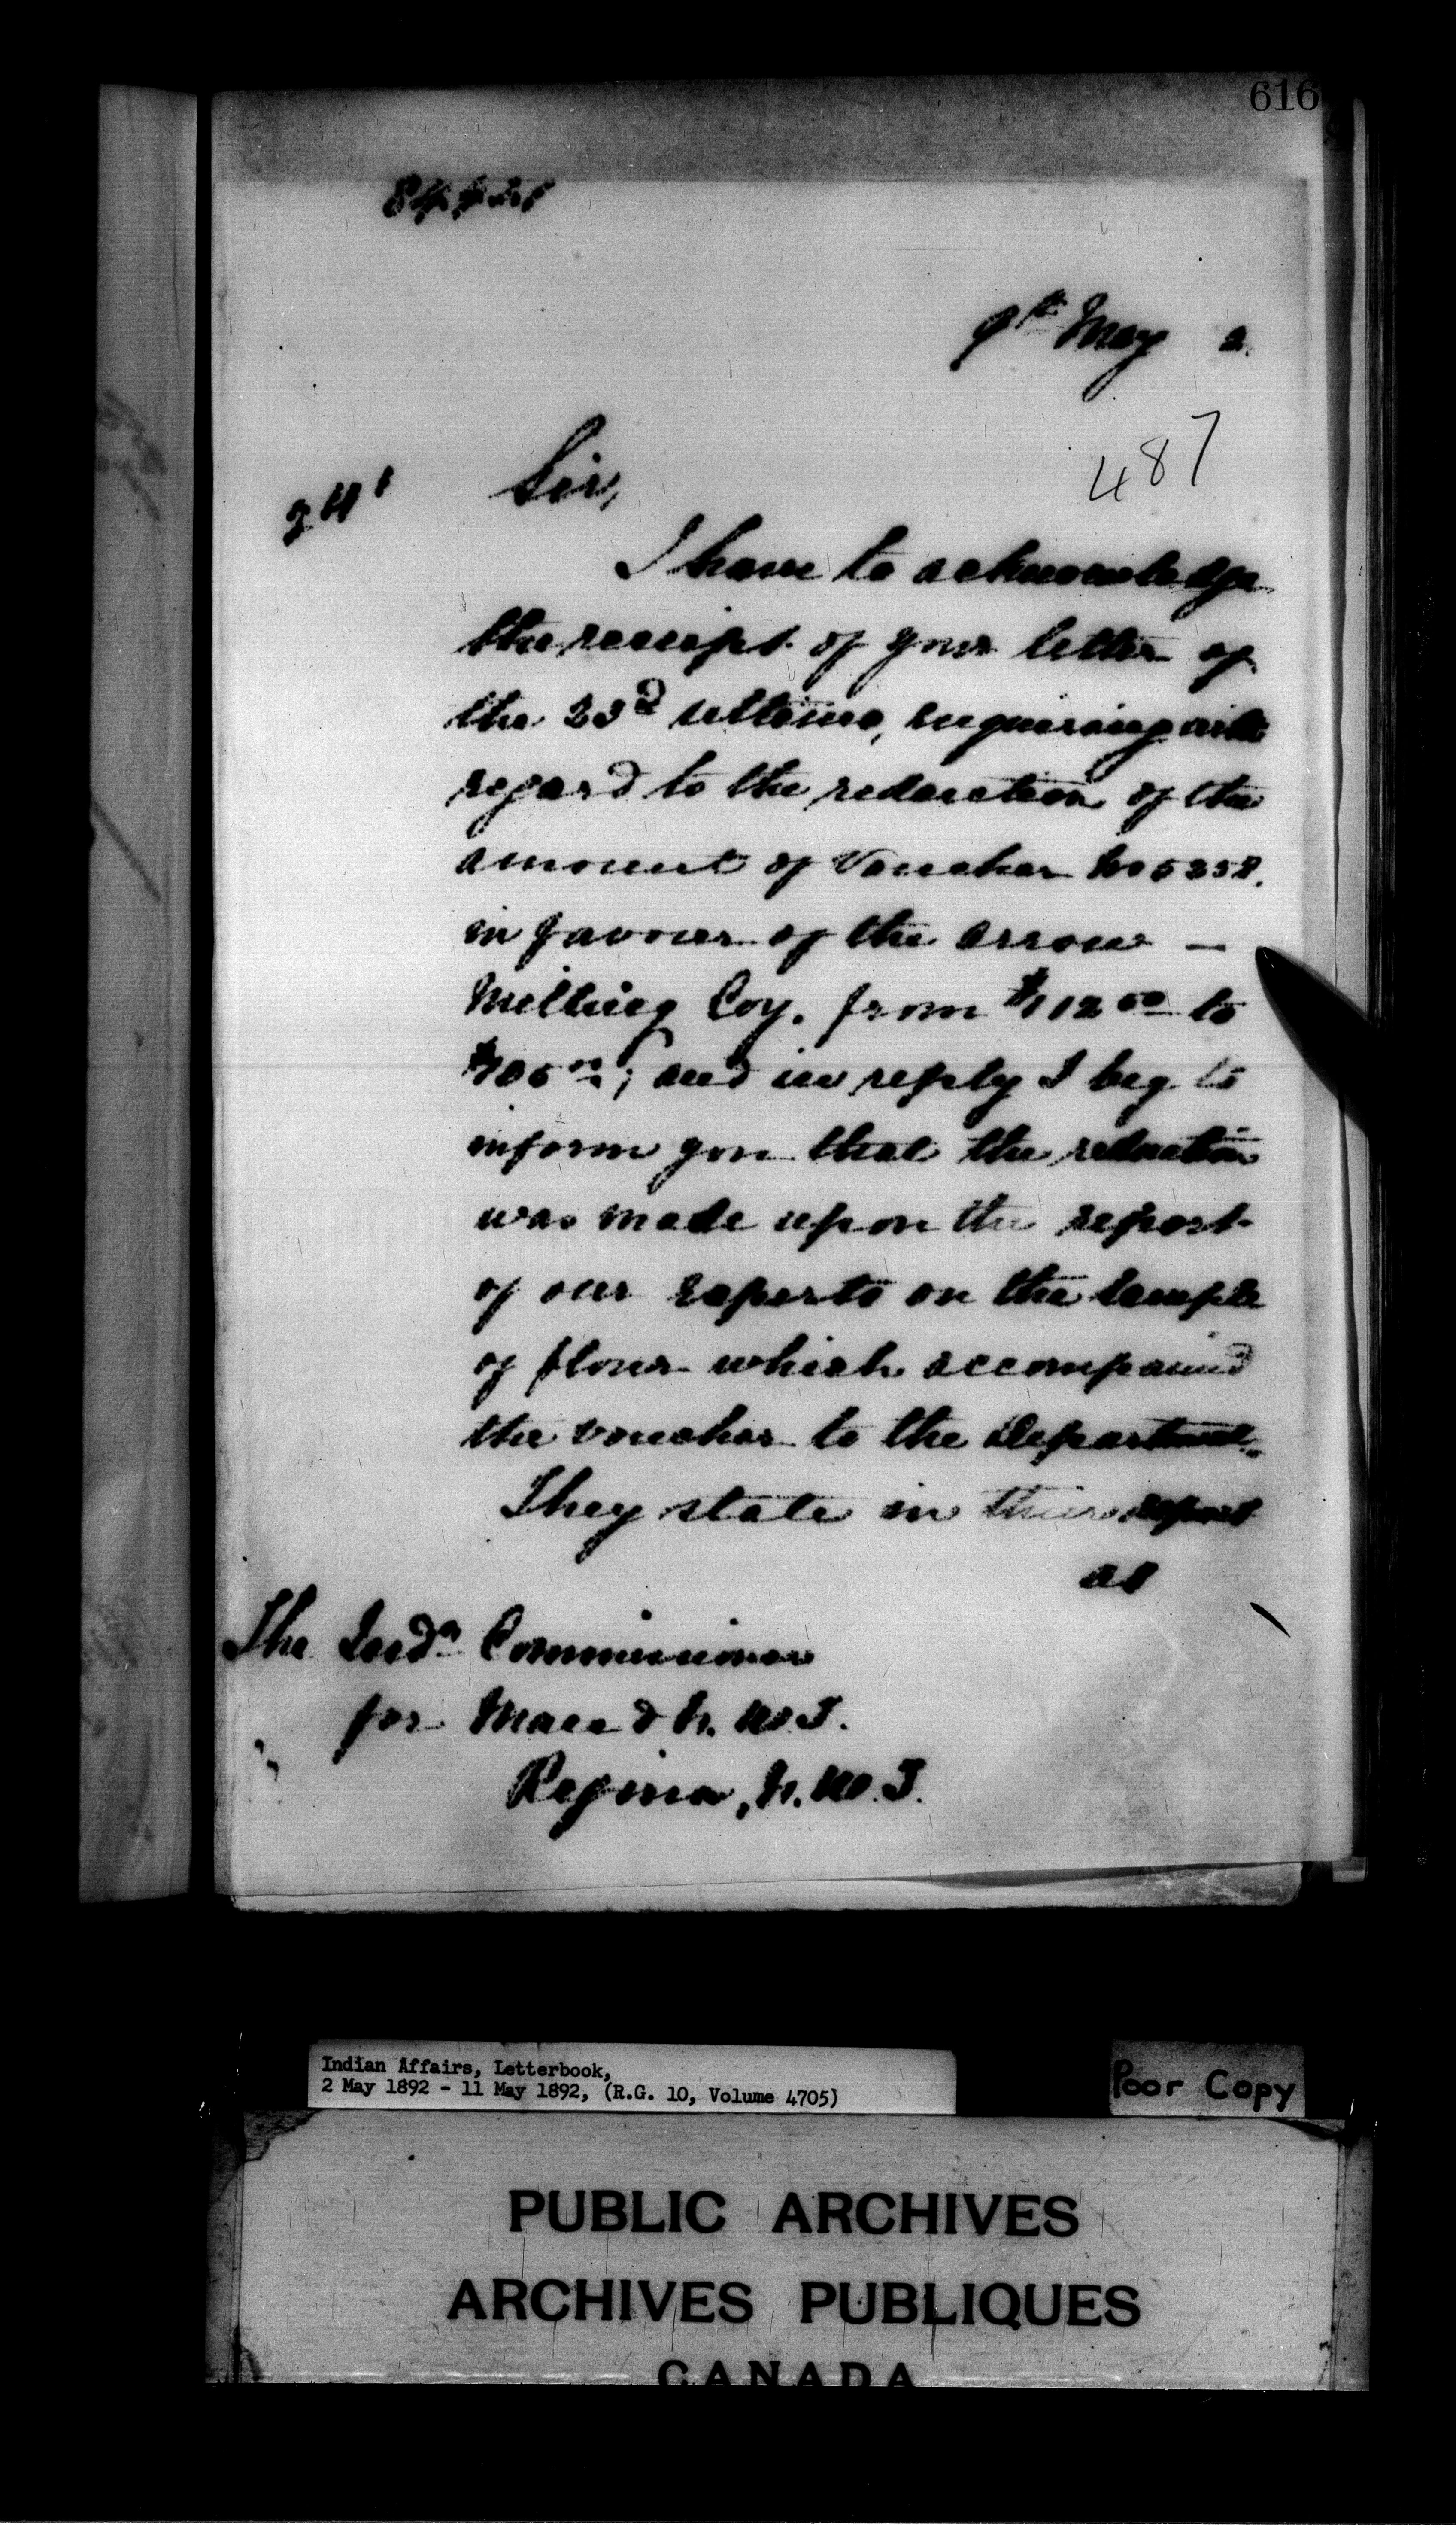 616
9th May 2.
487
Sir,
I have to acknowledge
the receipt of your letter of
the 23d ultimo, enquiring with
regard to the reduction of the
amount of Voucher No 5258.
in favour of the Arrow -
Milling Coy. from $112 50 to
$105 00; and in reply I beg to
inform you that the reduction
was made upon the report
of our Experts on the sample
of flour which accompanied
the voucher to the Department.
They state in their report
as
The Indn Commissioner
for Man & N. W. T.
Regina, N. W. T.
Indian Affairs, Letterbook,
2 May 1892 - 11 May 1892, (R.G. 10, Volume 4705)
Poor Copy
PUBLIC ARCHIVES
ARCHIVES PUBLIQUES
CANADA